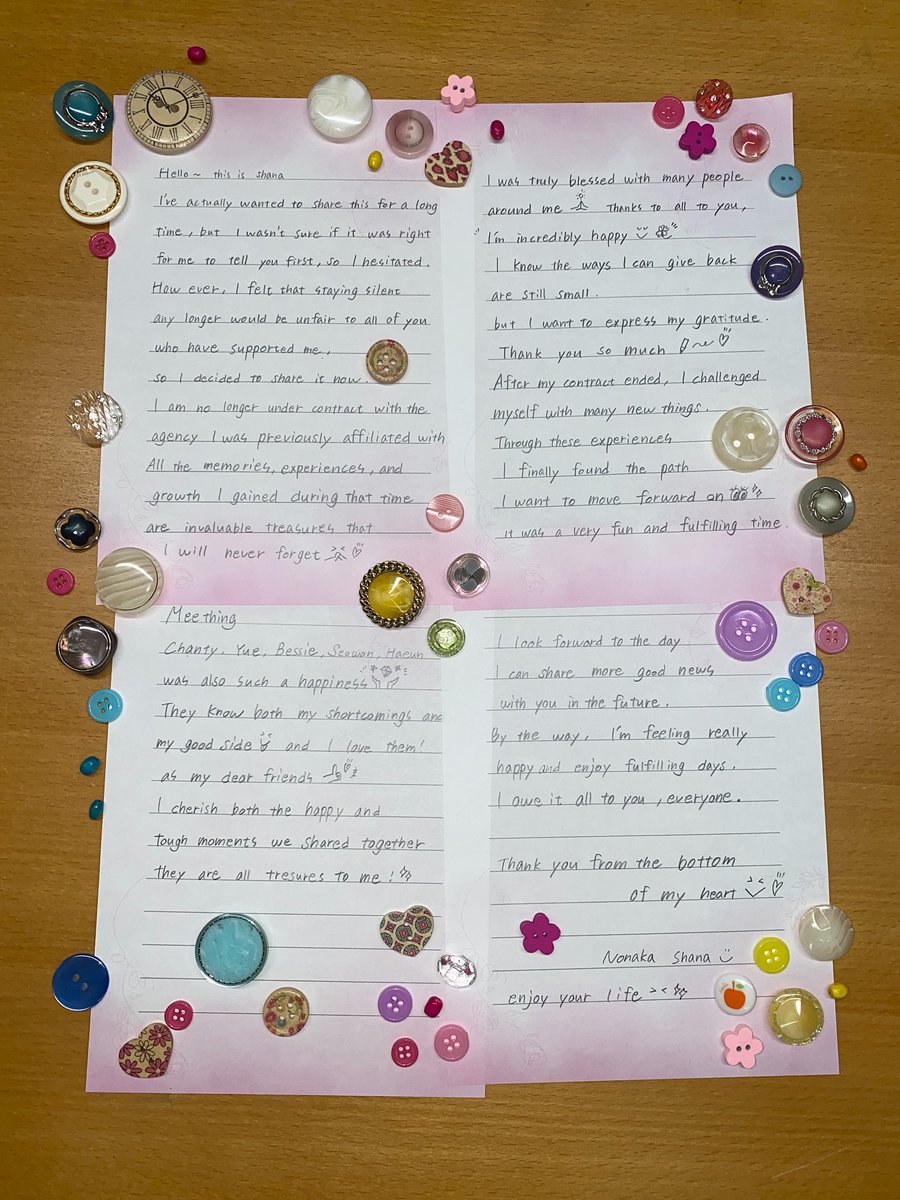 Hello~ this is shana
I've actually wanted to share this for a long
time, but I wasn't sure if it was right
for me to tell you first, so I hesitated.
How ever, I felt that staying silent
any longer would be unfair to all of you
who have supported me,
so I decided to share it now.
I am no longer under contract with the
agency I was previously affiliated with
All the memories, experiences, and
growth I gained during that time
are invaluable treasures that
I will never forget
I was truly blessed with many people
around me Thanks to all to you,
I'm incredibly happy
I know the ways I can give back
are still small.
but I want to express my gratitude.
Thank you so much
After my contract ended, I challenged
myself with many new things.
Through these experiences
I finally found the path
I want to move forward on
it was a very fun and fulfilling time.
Meething
Chanty, Yue, Bessie, Seowon, Haeun
was also such a happiness
They know both my shortcomings and
my good side and I love them!
as my dear friends
I cherish both the happy and
tough moments we shared together
they are all tresures to me!
I look forward to the day
I can share more good news
with you in the future.
By the way, I'm feeling really
happy and enjoy fulfilling days.
I owe it all to you, everyone.
Thank you from the bottom
of my heart
Nonaka Shana
enjoy your life